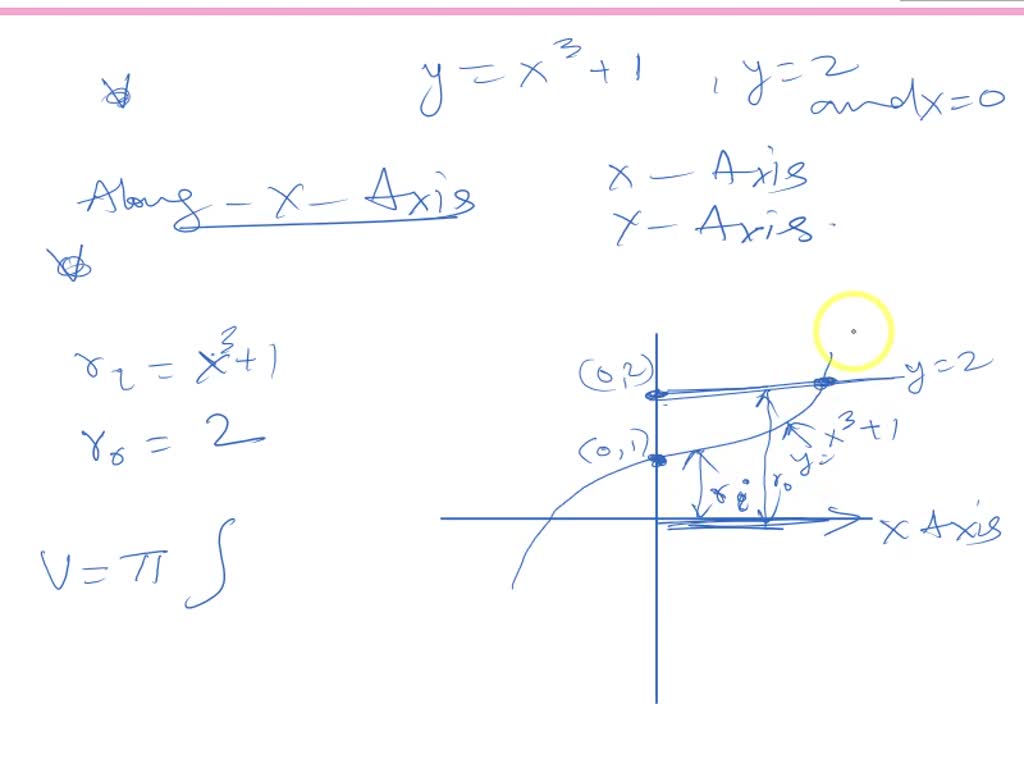 y = x³ + 1 , y = 2
and x = 0
Along - X - Axis
x - Axis
x - Axis.
rᵢ = x³ + 1
r₀ = 2
V = π ∫
(0,2)
y = 2
(0,1)
y = x³ + 1
rᵢ
r₀
x Axis